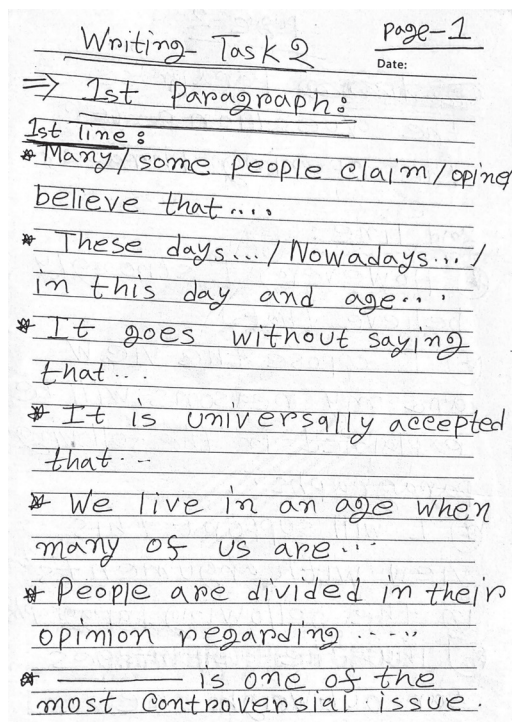 Writing Task 2
page-1
Date:
⇒ 1st Paragraph:
1st line:
* Many/some people claim/opine
believe that....
* These days.../Nowadays.../
in this day and age...
* It goes without saying
that...
* It is universally accepted
that...
* We live in an age when
many of us are...
* People are divided in their
opinion regarding .....
* ———— is one of the
most controversial issue.